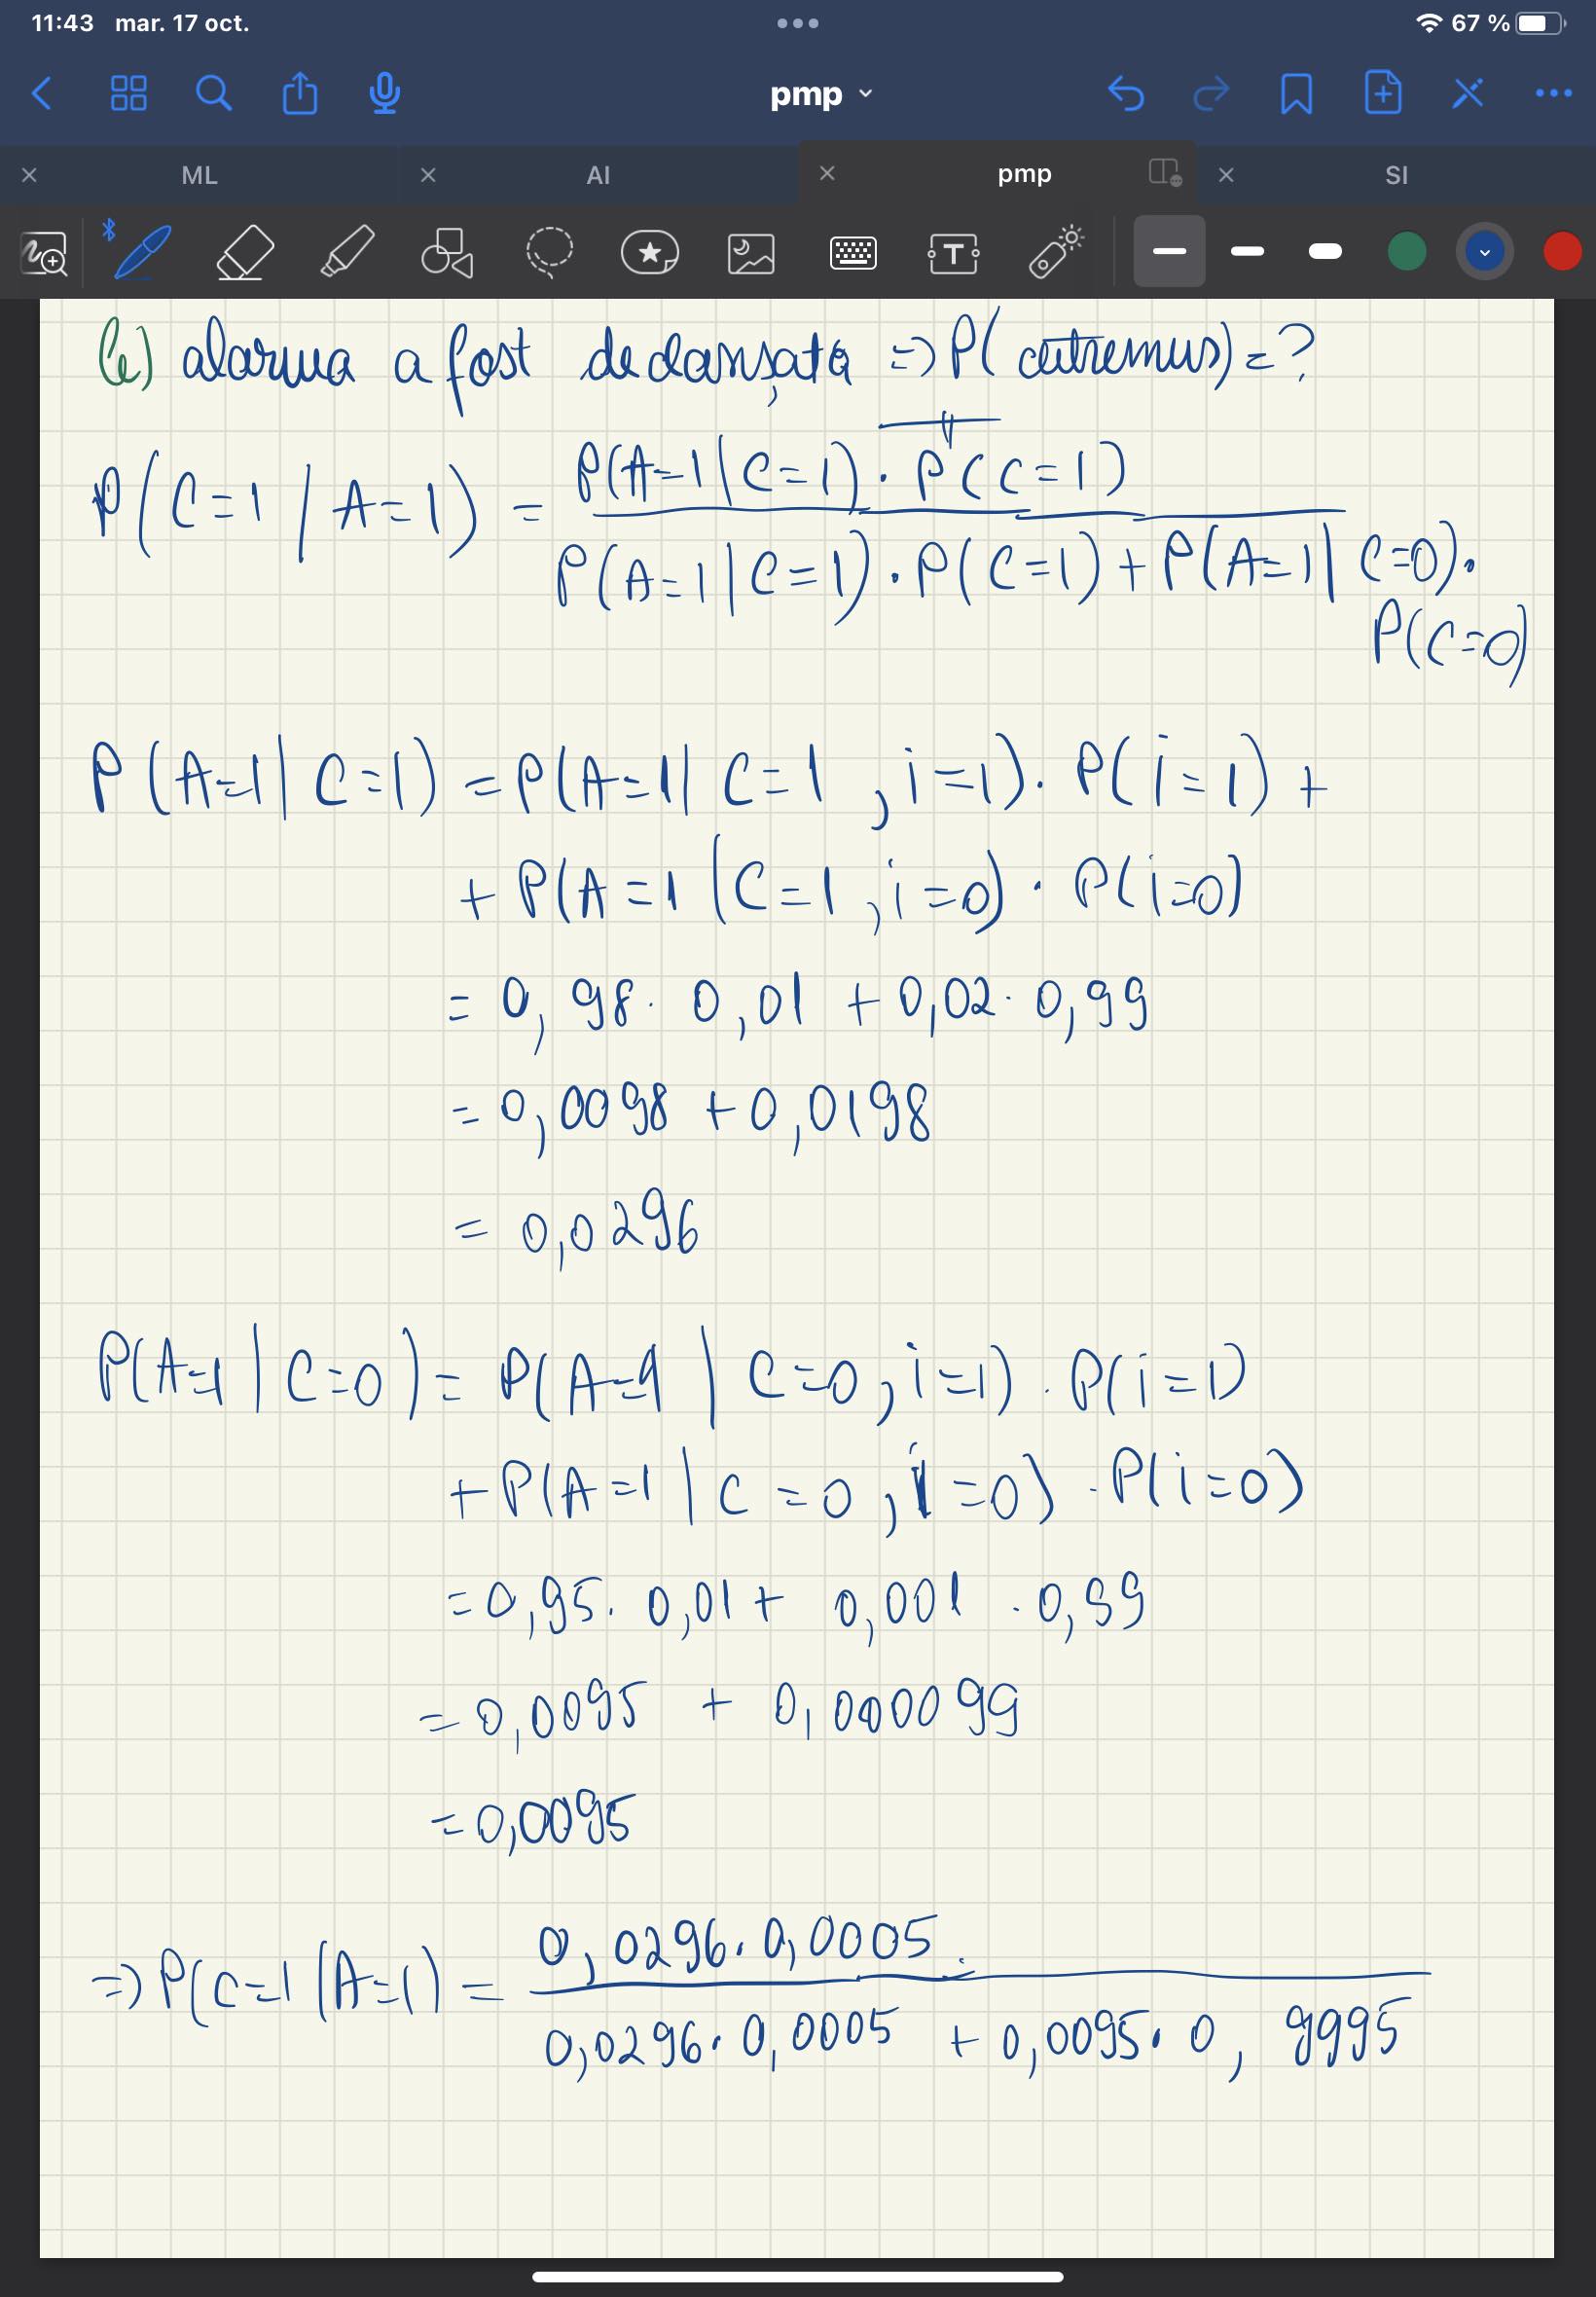 11:43 mar. 17 oct.
67 %
pmp
ML
AI
pmp
SI
b) alarma a fost declanșată => P(cutremur) = ?
P(C=1 | A=1) = P(A=1 | C=1) · P(C=1)
P(A=1 | C=1) · P(C=1) + P(A=1 | C=0) ·
P(C=0)
P(A=1 | C=1) = P(A=1 | C=1, i=1) · P(i=1) +
+ P(A=1 | C=1, i=0) · P(i=0)
= 0,98 · 0,01 + 0,02 · 0,99
= 0,0098 + 0,0198
= 0,0296
P(A=1 | C=0) = P(A=1 | C=0, i=1) · P(i=1)
+ P(A=1 | C=0, i=0) · P(i=0)
= 0,95 · 0,01 + 0,001 · 0,99
= 0,0095 + 0,0000099
= 0,0095
=> P(C=1 | A=1) = 0,0296 · 0,0005
0,0296 · 0,0005 + 0,0095 · 0,9995